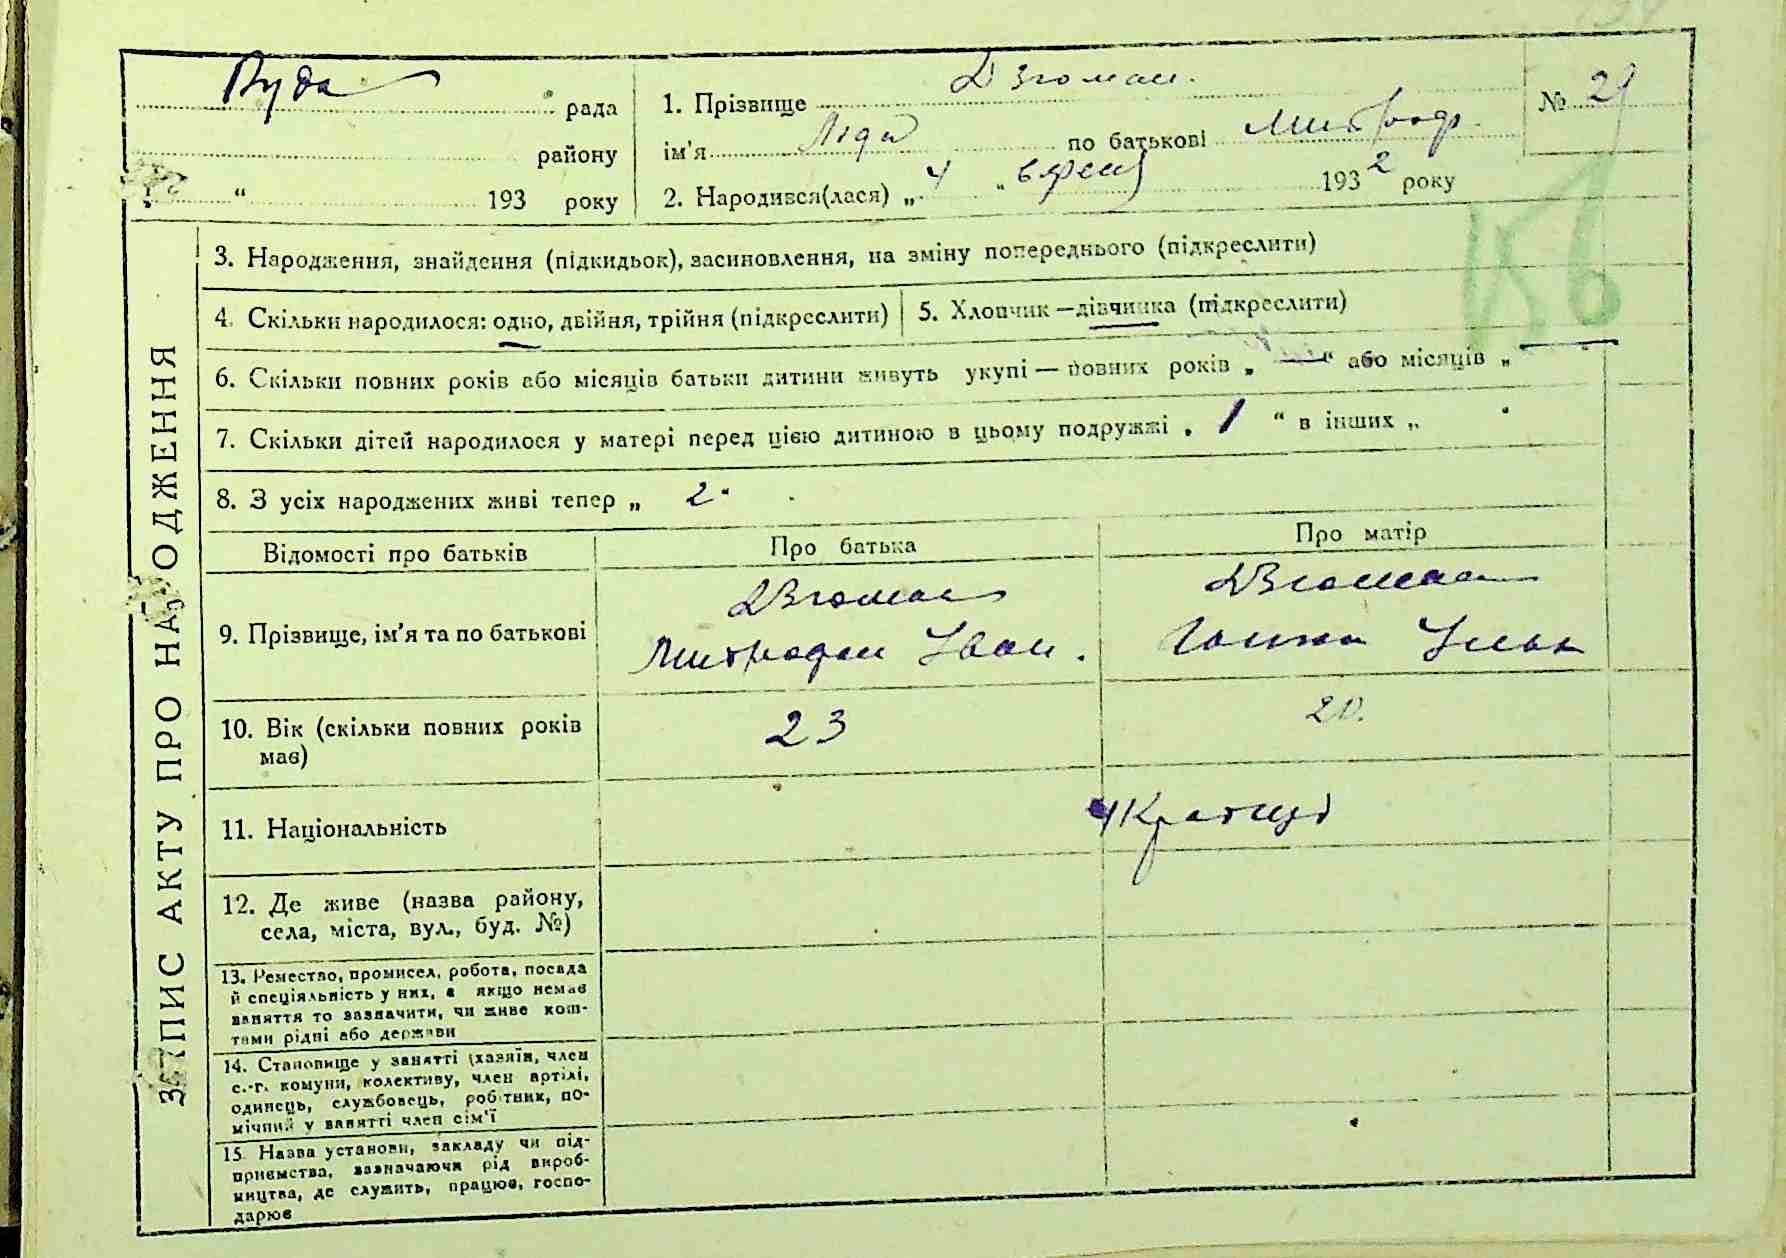 Руда рада
району
" 193 року
1. Прізвище Дзгоман.
ім'я Ліда по батькові Митроф.
2. Народився(лася) „ 4 " 1932 року
№ 29
156
ЗАПИС АКТУ ПРО НАРОДЖЕННЯ
3. Народження, знайдення (підкидьок), засиновлення, на зміну попереднього (підкреслити)
4. Скільки народилося: одно, двійня, трійня (підкреслити) 5. Хлопчик — дівчинка (підкреслити)
6. Скільки повних років або місяців батьки дитини живуть укупі — повних років „ — " або місяців „
7. Скільки дітей народилося у матері перед цією дитиною в цьому подружжі „ 1 " в інших „
8. З усіх народжених живі тепер „ 2 "
Відомості про батьків Про батька Про матір
9. Прізвище, ім'я та по батькові
Дзгоман Дзгоман
Митрофан Іван. Ільк
10. Вік (скільки повних років має) 23 20.
11. Національність Українці
12. Де живе (назва району, села, міста, вул., буд. №)
13. Ремество, промисел, робота, посада
й спеціяльність у них, а якщо немає
заняття то зазначити, чи живе кош-
тами рідні або держави
14. Становище у занятті (хазяїн, член
с.-г. комуни, колективу, член артілі,
одинець, службовець, робітник, по-
мічний у занятті член сім'ї
15. Назва установи, закладу чи під-
приємства, зазначаючи рід вироб-
ництва, де служить, працює, госпо-
дарює